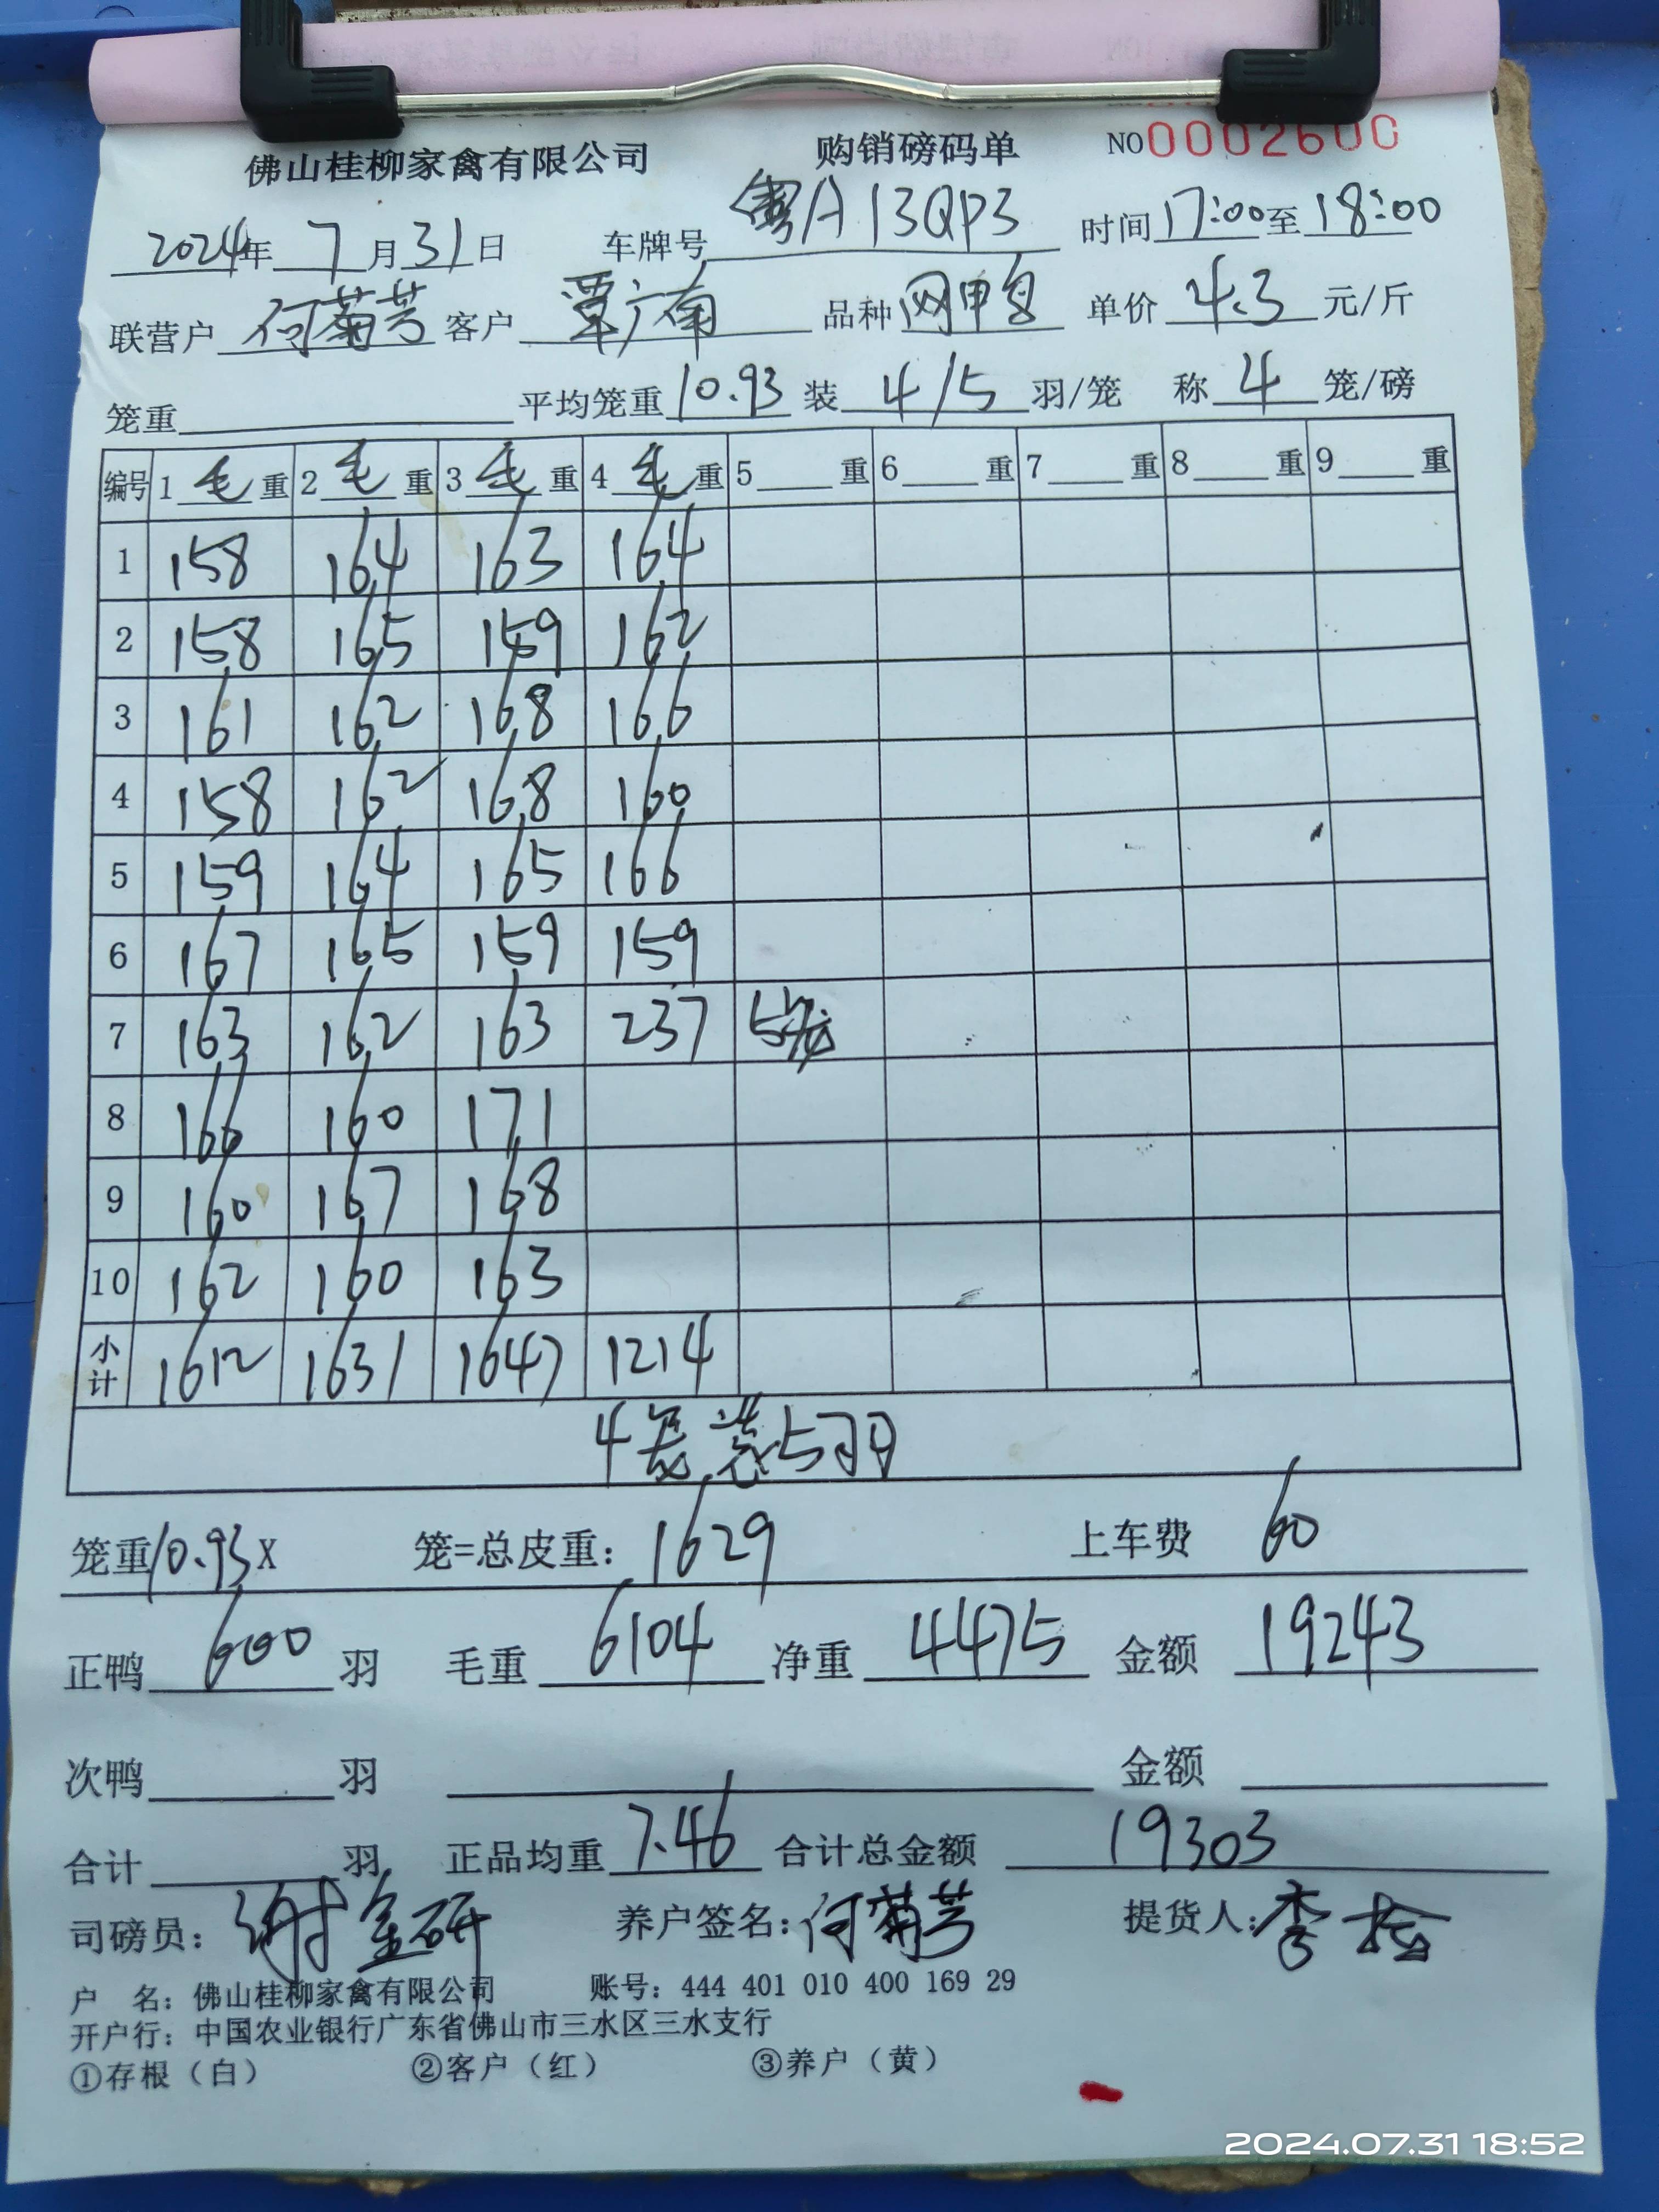 佛山桂柳家禽有限公司 购销磅码单 NO 0002600
2024年 7月31日 车牌号 粤A13QP3 时间 17:00至18:00
联营户 何菊芳 客户 覃广南 品种 网鸭 单价 4.3 元/斤
笼重 平均笼重 10.93 装 4/5 羽/笼 称 4 笼/磅
编号 1 毛 重 2 毛 重 3 毛 重 4 毛 重 5 重 6 重 7 重 8 重 9 重
1 158 164 163 164
2 158 165 159 162
3 161 162 168 166
4 158 162 168 160
5 159 164 165 166
6 167 165 159 159
7 163 162 163 237 5笼
8 166 160 171
9 160 167 168
10 162 160 163
小计 1612 1631 1647 1214
4笼装5羽
笼重 10.93X 笼=总皮重: 1629 上车费 60
正鸭 600 羽 毛重 6104 净重 4475 金额 19243
次鸭 羽 金额
合计 羽 正品均重 7.46 合计总金额 19303
司磅员: 谢金研 养户签名: 何菊芳 提货人: 李
户 名: 佛山桂柳家禽有限公司 账号: 444 401 010 400 169 29
开户行: 中国农业银行广东省佛山市三水区三水支行
①存根(白) ②客户(红) ③养户(黄)
2024.07.31 18:52